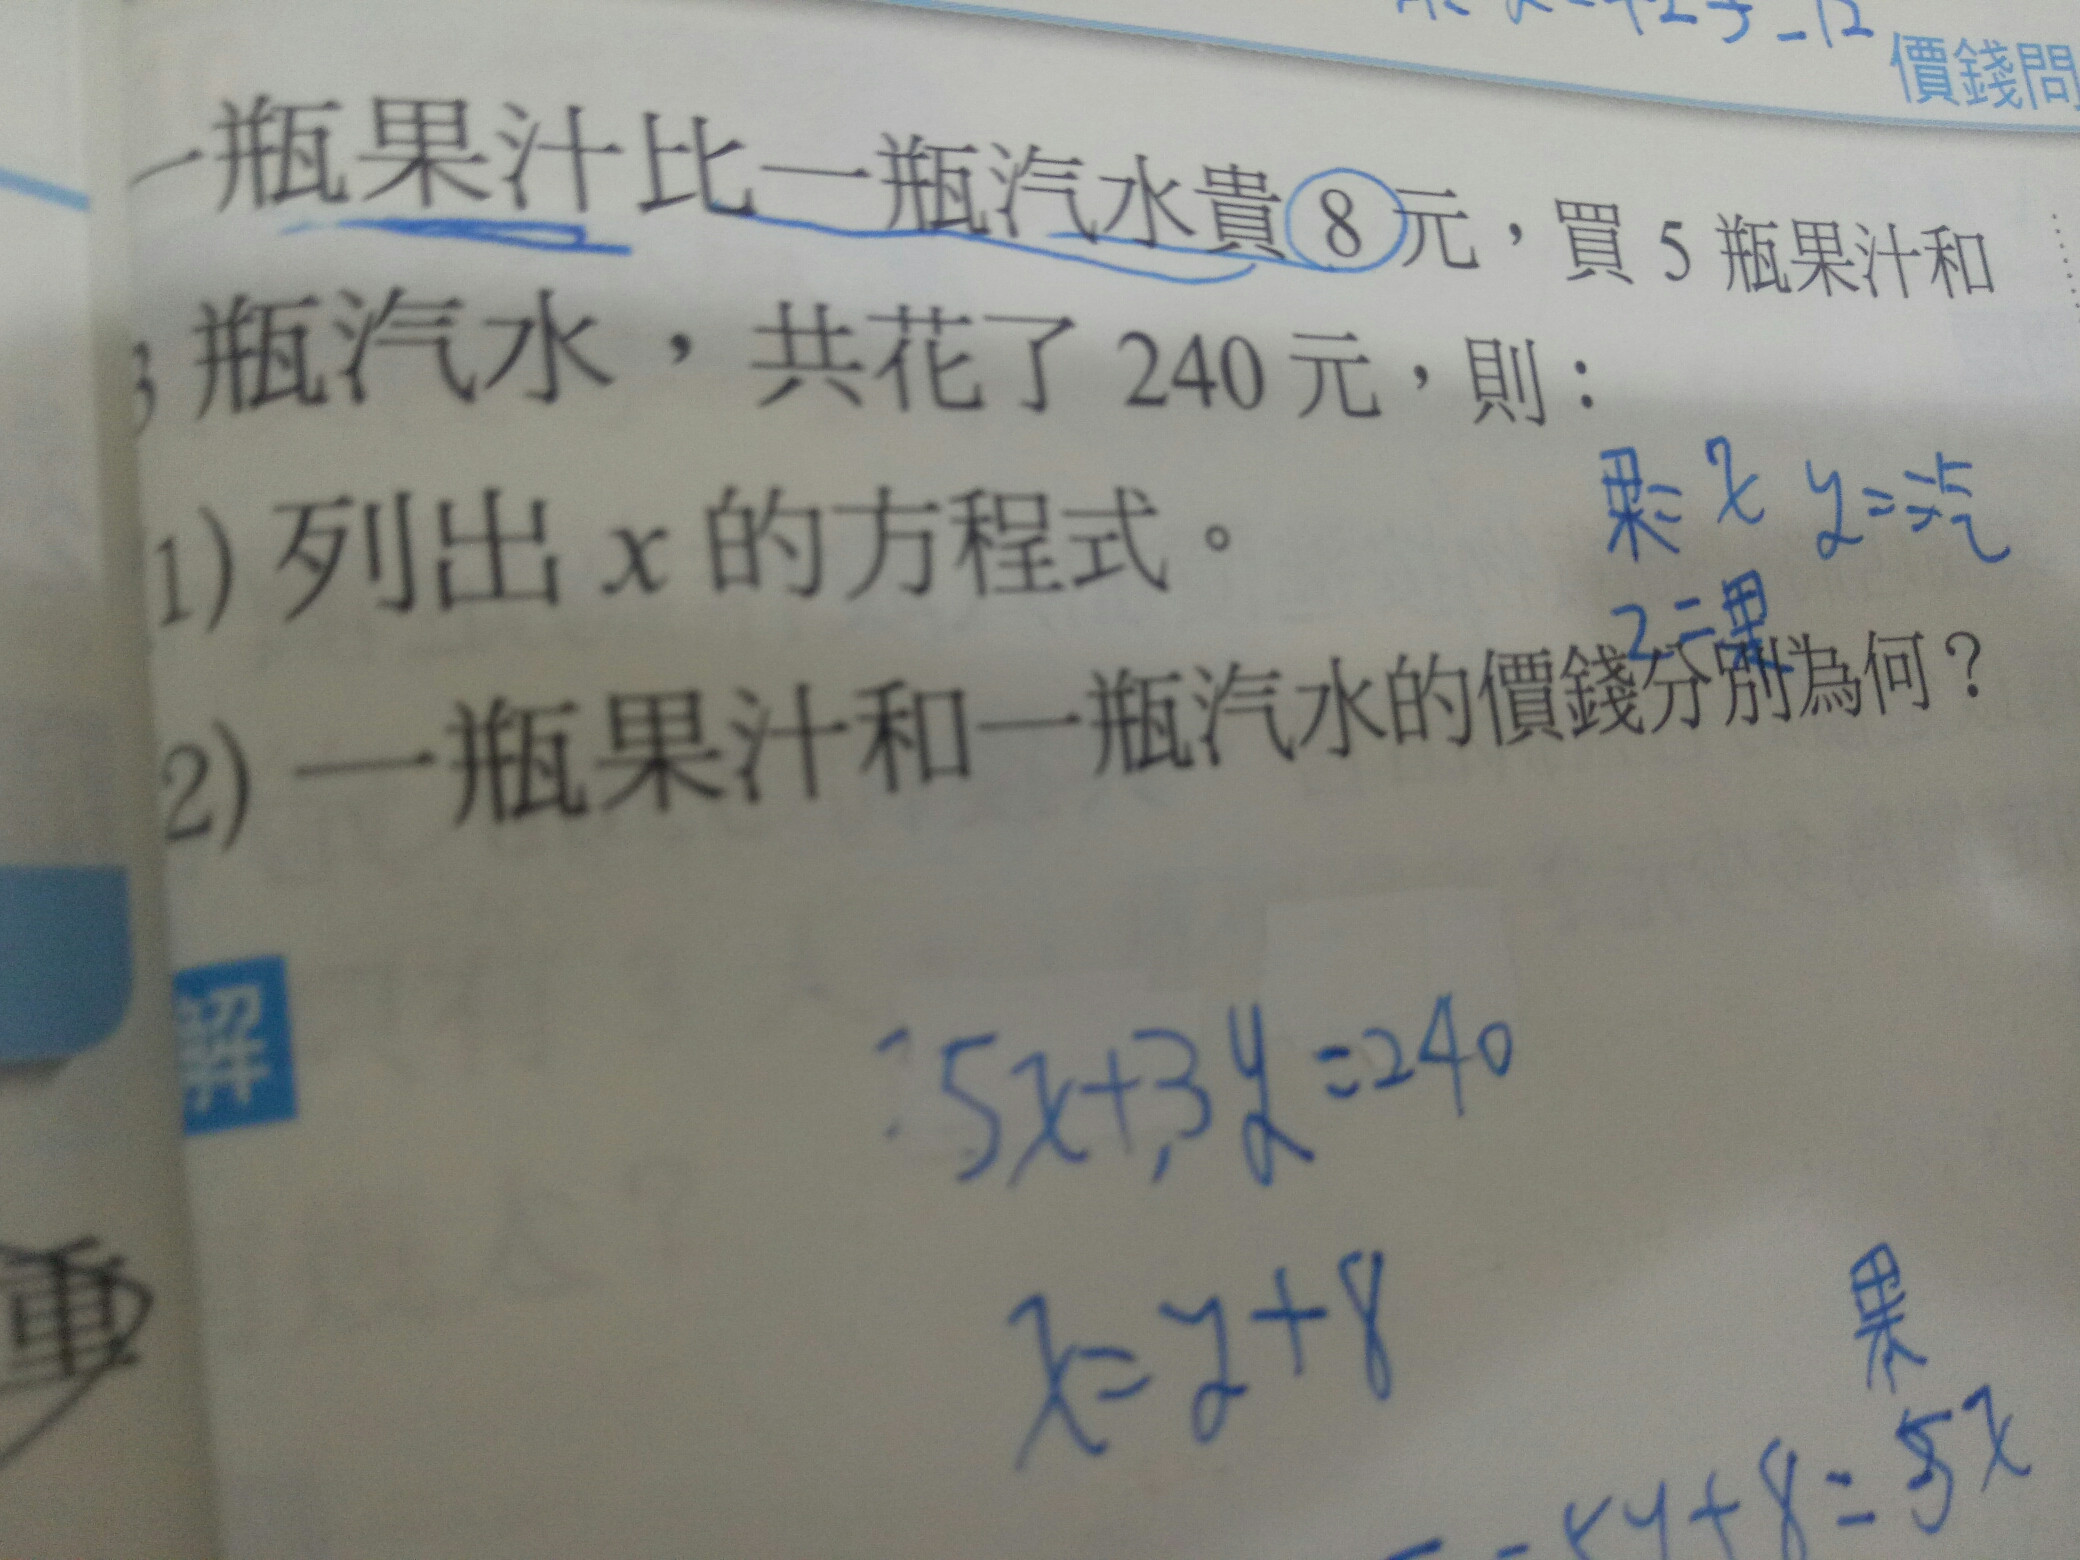 價錢問
一瓶果汁比一瓶汽水貴8元，買5瓶果汁和
3瓶汽水，共花了240元，則：
1) 列出x的方程式。
果=x y=汽
2=果
2) 一瓶果汁和一瓶汽水的價錢分別為何？
解
5x+3y=240
x=y+8
果
y+8=5x
重